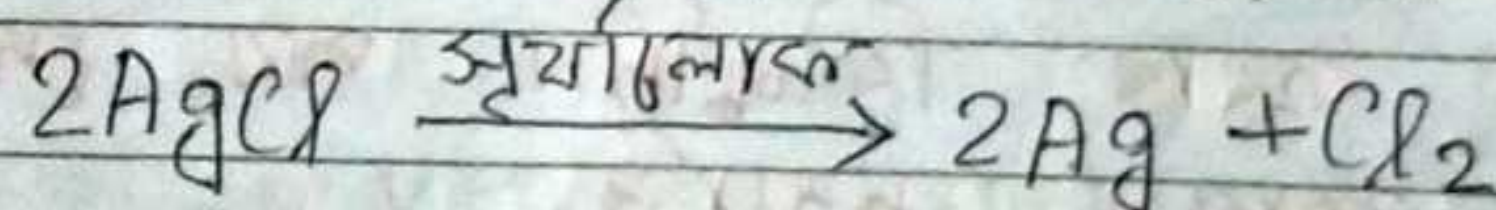 2AgCl সূর্যালোক → 2Ag + Cl₂